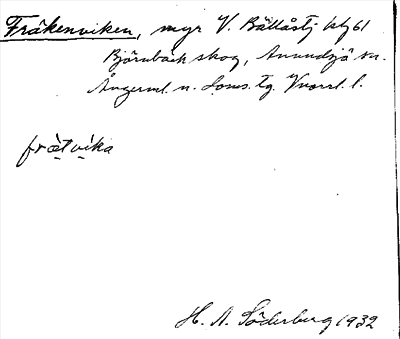 Fräkenviken, myr V. Bällåstj blg 61
Björnbäck skog, Anundsjö sn.
Ångerml. n. Doms. tg. Vnorrl. l.
frätvika
H. A. Söderberg 1932